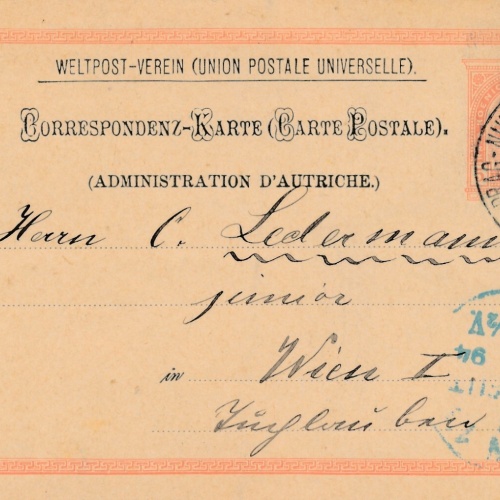 WELTPOST-VEREIN (UNION POSTALE UNIVERSELLE).
CORRESPONDENZ-KARTE (CARTE POSTALE).
(ADMINISTRATION D'AUTRICHE.)
Herrn C. Ledermann
junior
in Wien I
Tuchlauben
PRAG-NU
94